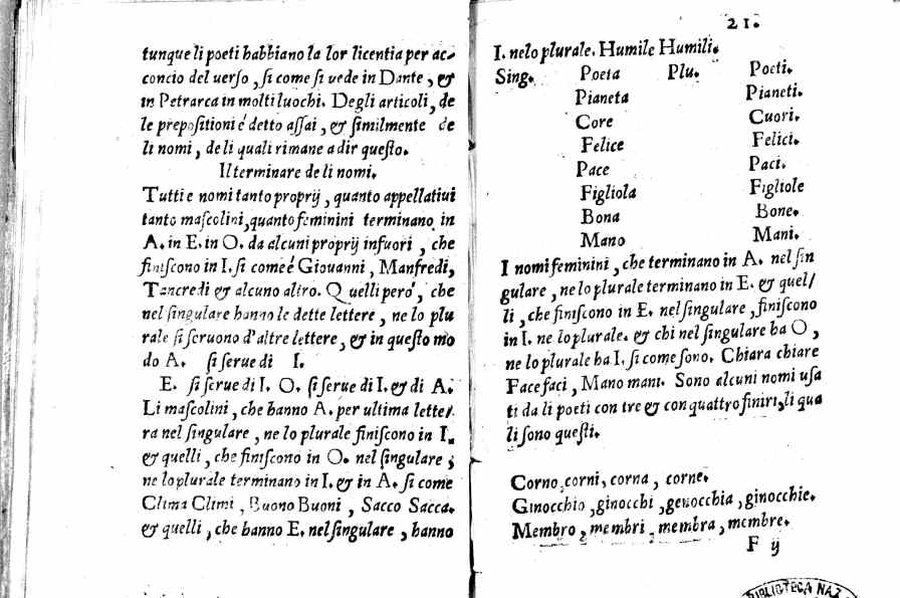 tunque li poeti habbiano la lor licentia per ac-
concio del uerso, si come si vede in Dante, &
in Petrarca in molti luochi. Degli articoli, de
le prepositioni é detto assai, & similmente de
li nomi, de li quali rimane a dir questo.
Il terminare de li nomi.
Tutti e nomi tanto proprij, quanto appellatiui
tanto mascolini, quanto feminini terminano in
A. in E. in O. da alcuni proprij infuori, che
finiscono in I. si come é Giouanni, Manfredi,
Tancredi & alcuno altro. Quelli pero', che
nel singulare hanno le dette lettere, ne lo plu
rale si seruono d'altre lettere, & in questo mo
do A. si serue di I.
E. si serue di I. O. si serue di I. & di A.
Li mascolini, che hanno A. per ultima lette/
ra nel singulare, ne lo plurale finiscono in I.
& quelli, che finiscono in O. nel singulare ;
ne lo plurale terminano in I. & in A. si come
Clima Climi, Buono Buoni, Sacco Sacca.
& quelli, che hanno E. nel singulare, hanno
21.
I. nelo plurale. Humile Humili.
Sing. Poeta Plu. Poeti.
Pianeta Pianeti.
Core Cuori.
Felice Felici.
Pace Paci.
Figliola Figliole
Bona Bone.
Mano Mani.
I nomi feminini, che terminano in A. nel sin
gulare, ne lo plurale terminano in E. & quel/
li, che finiscono in E. nel singulare, finiscono
in I. ne lo plurale. & chi nel singulare ha O,
ne lo plurale ha I. si come sono. Chiara chiare
Face faci, Mano mani. Sono alcuni nomi usa
ti da li poeti con tre & con quattro finiri, li qua
li sono questi.
Corno corni, corna, corne.
Ginocchio, ginocchi, genocchia, ginocchie.
Membro, membri, membra, membre.
F ij
BIBLIOTECA NAZ